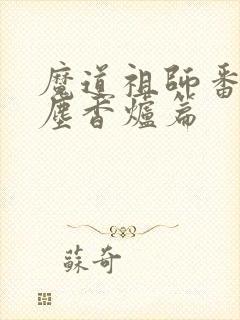 魔道祖師番
塵香爐篇
蘇奇